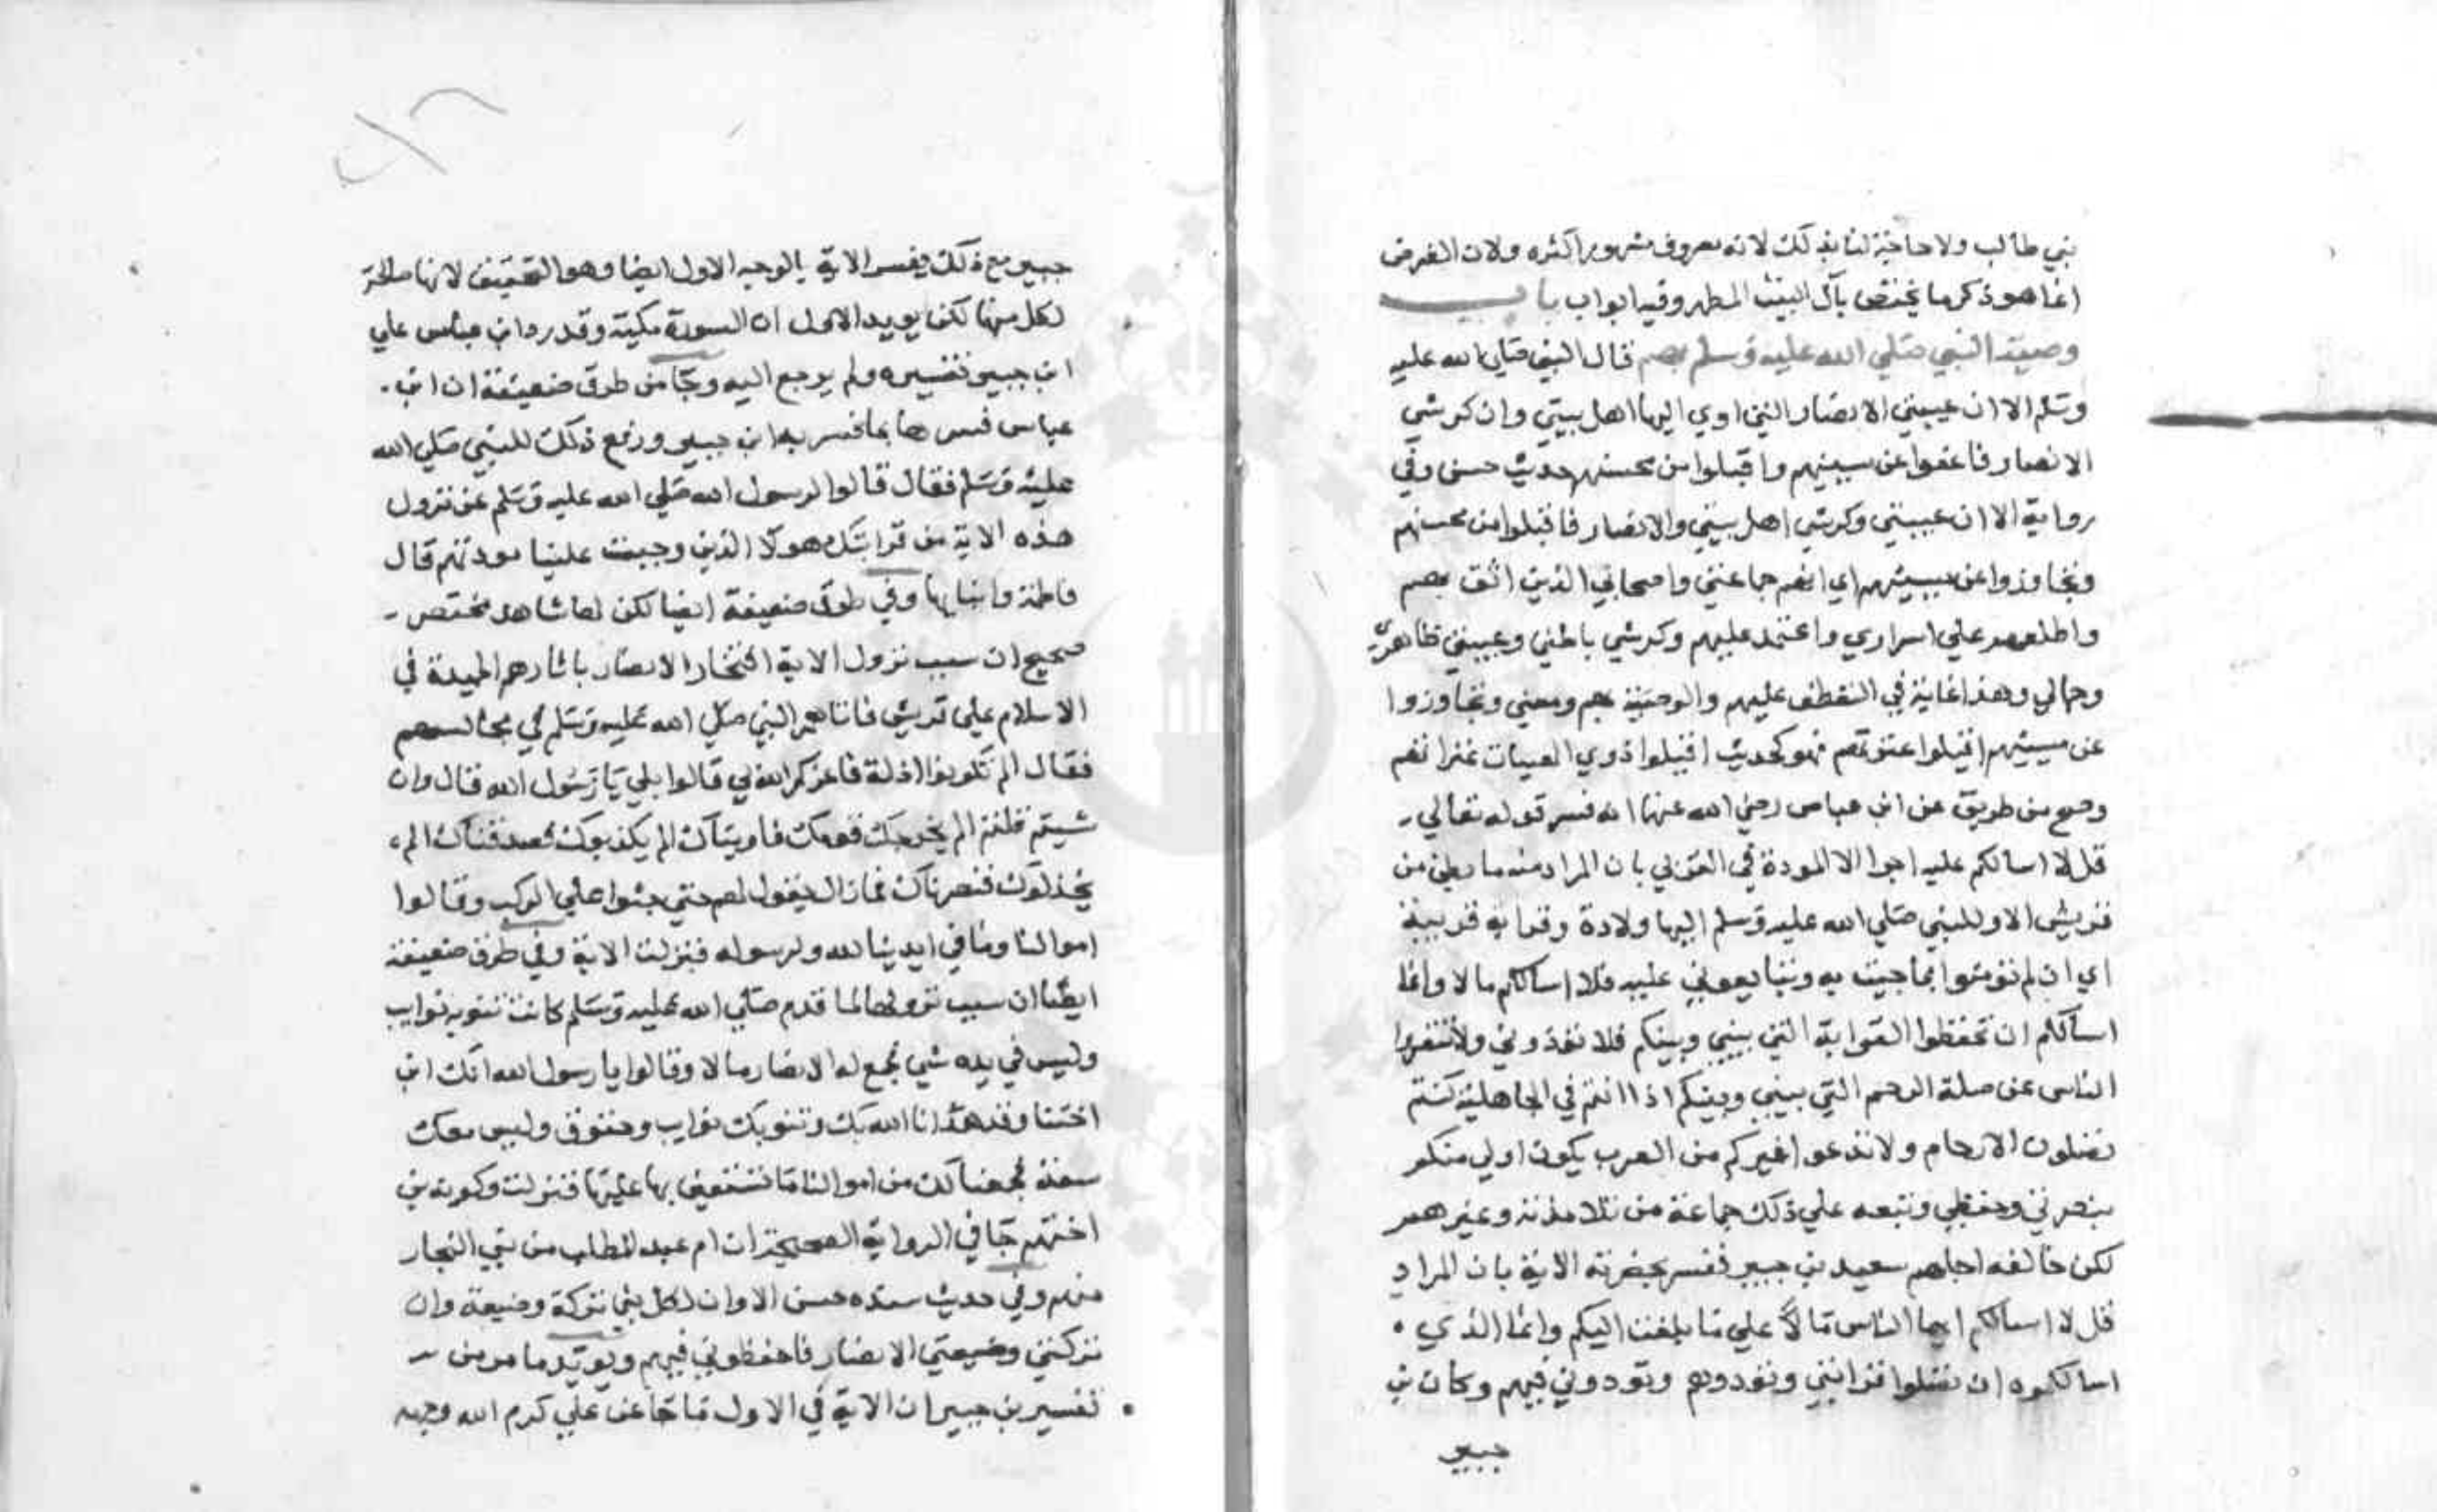 بني طالب ولا حاجة لنا بذلك لانه معروف مشهور اكثره ولان الغرض
انما هو ذكر ما يختص بآل البيت المطهر وفيه ابواب باب
وصية النبي صلي الله عليه وسلم بهم قال النبي صلي الله عليه
وسلم الا ان عيبتي الانصار التي اوي اليها اهل بيتي وان كرشي
الانصار فاعفوا عن مسيئهم واقبلوا من محسنهم حديث حسن وفي
رواية الا ان عيبتي وكرشي اهل بيتي والانصار فاقبلوا من محسنهم
وتجاوزوا عن مسيئهم اي انهم جماعتي واصحابي الذين اثق بهم
واطلعهم علي اسراري واعتمد عليهم وكرشي باطني وعيبتي ظاهري
وجمالي وهذا غاية في التعطف عليهم والوصية بهم ومعني وتجاوزوا
عن مسيئهم اقيلوا عثرتهم فهو كحديث اقيلوا ذوي الهيئات عثراتهم
وصح من طريق عن ابن عباس رضي الله عنهما انه فسر قوله تعالي
قل لا اسالكم عليه اجرا الا المودة في القربي بان المراد منه ما بطن من
قريش الا وللنبي صلي الله عليه وسلم اليها ولادة وقرابة قريبة
اي ان لم تؤمنوا بما جيت به وتبايعوني عليه فلا اسالكم مالا وانما
اسالكم ان تحفظوا القرابة التي بيني وبينكم فلا تؤذوني ولا تنفروا
الناس عن صلة الرحم التي بيني وبينكم اذ انتم في الجاهلية كنتم
تصلون الارحام ولا تدعوا غيركم من العرب يكون اولي منكم
بنصرتي وحفظي وتبعه علي ذلك جماعة من تلامذته وغيرهم
لكن خالفه اجلهم سعيد بن جبير ففسر بحضرته الاية بان المراد
قل لا اسالكم ايها الناس مالا علي ما بلغت اليكم وانما الذي
اسالكموه ان تصلوا قرابتي وتودوهم وتودوني فيهم وكان بن
جبير
جبير مع ذلك يفسر الاية بالوجه الاول ايضا وهو التحقيق لانها صالحة
لكل منهما لكن يويد الاول ان السورة مكية وقد رد ابن عباس علي
ابن جبير تفسيره ولم يرجع اليه وجا من طرق ضعيفة ان ابن
عباس فسرها بما فسر به ابن جبير ورفع ذلك للنبي صلي الله
عليه وسلم فقال قالوا لرسول الله صلي الله عليه وسلم عن نزول
هذه الاية من قرابتك هولا الذين وجبت علينا مودتهم قال
فاطمة وابناها وفي طرق ضعيفة ايضا لكن لها شاهد مختصر
صحيح ان سبب نزول الاية افتخار الانصار باثارهم الحميدة في
الاسلام علي قريش فاتاهم النبي صلي الله عليه وسلم في مجالسهم
فقال الم تكونوا اذلة فاعزكم الله بي قالوا بلي يا رسول الله قال وان
شيتم قلتم الم يخرجك قومك فاويناك الم يكذبوك فصدقناك الم
يخذلوك فنصرناك فما زال يقول لهم حتي جثوا علي الركب وقالوا
اموالنا وما في ايدينا لله ولرسوله فنزلت الاية وفي طرق ضعيفة
ايضا ان سبب نزولها لما قدم صلي الله عليه وسلم كانت تنوبه نوايب
وليس في يده شي فجمع له الانصار مالا وقالوا يا رسول الله انك ابن
اختنا وقد هدانا الله بك وتنوبك نوايب وحقوق وليس معك
سعة فجمعنا لك من اموالنا ما تستعين بها عليها فنزلت وكونه بن
اختهم جا في الرواية الصحيحة ان ام عبد المطلب من بني النجار
منهم وفي حديث سنده حسن الا وان لكل نبي تركة وضيعة وان
تركتي وضيعتي الانصار فاحفظوني فيهم ويويد ما مر من
تفسير بن جبير ان الاية في الاول ما جا عن علي كرم الله وجهه